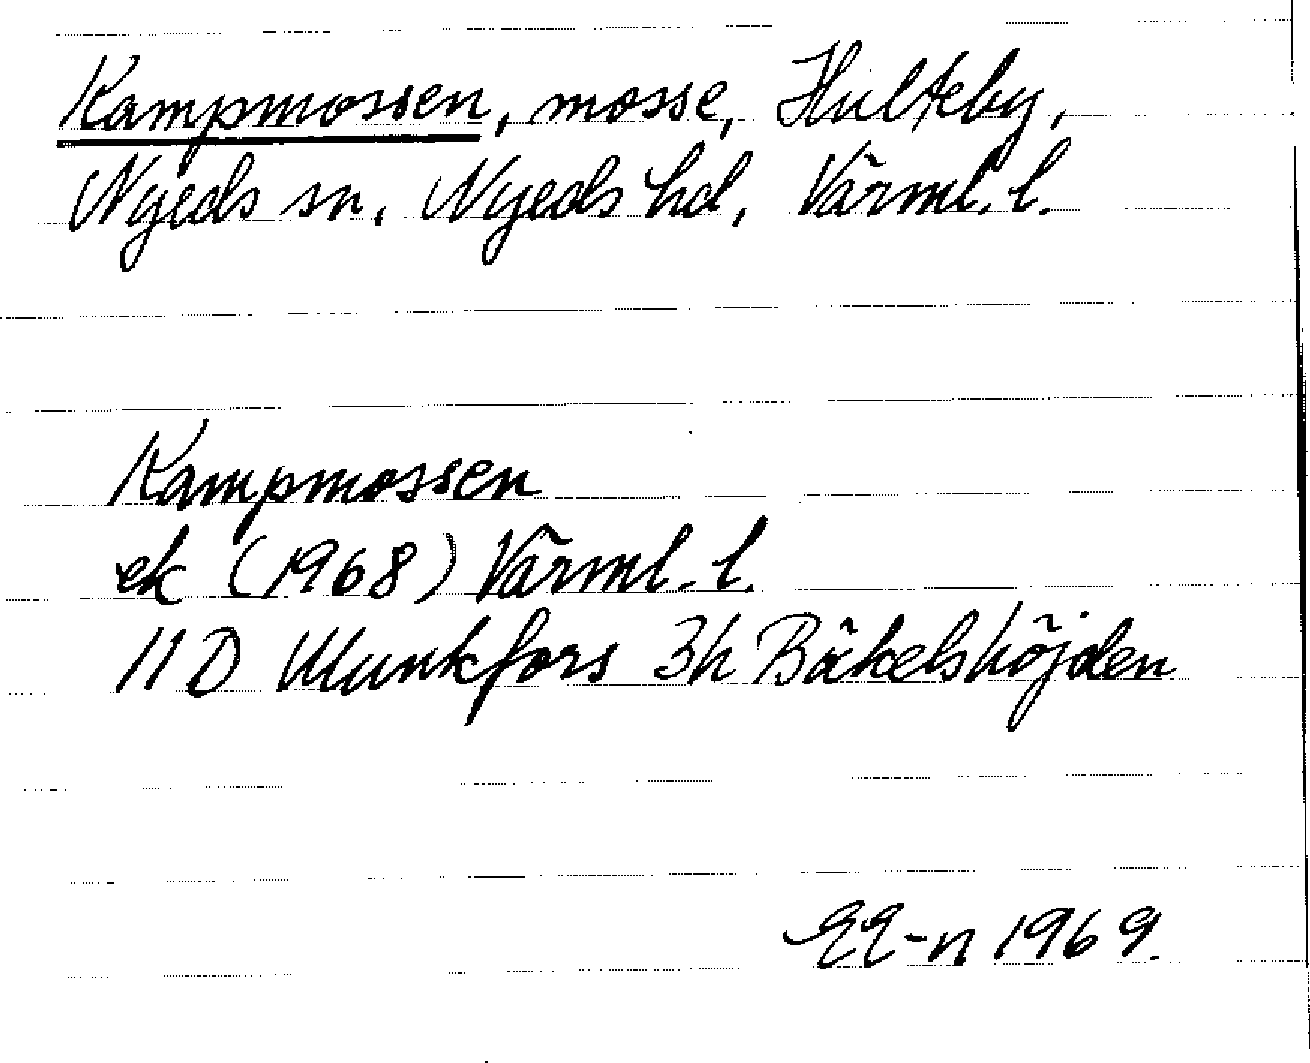 Kampmossen, mosse, Hulteby,
Nyeds sn, Nyeds hd, Värml. l.
Kampmossen
ek (1968) Värml. l.
11 D Munkfors 3h Bäkelshöjden
EE-n 1969.